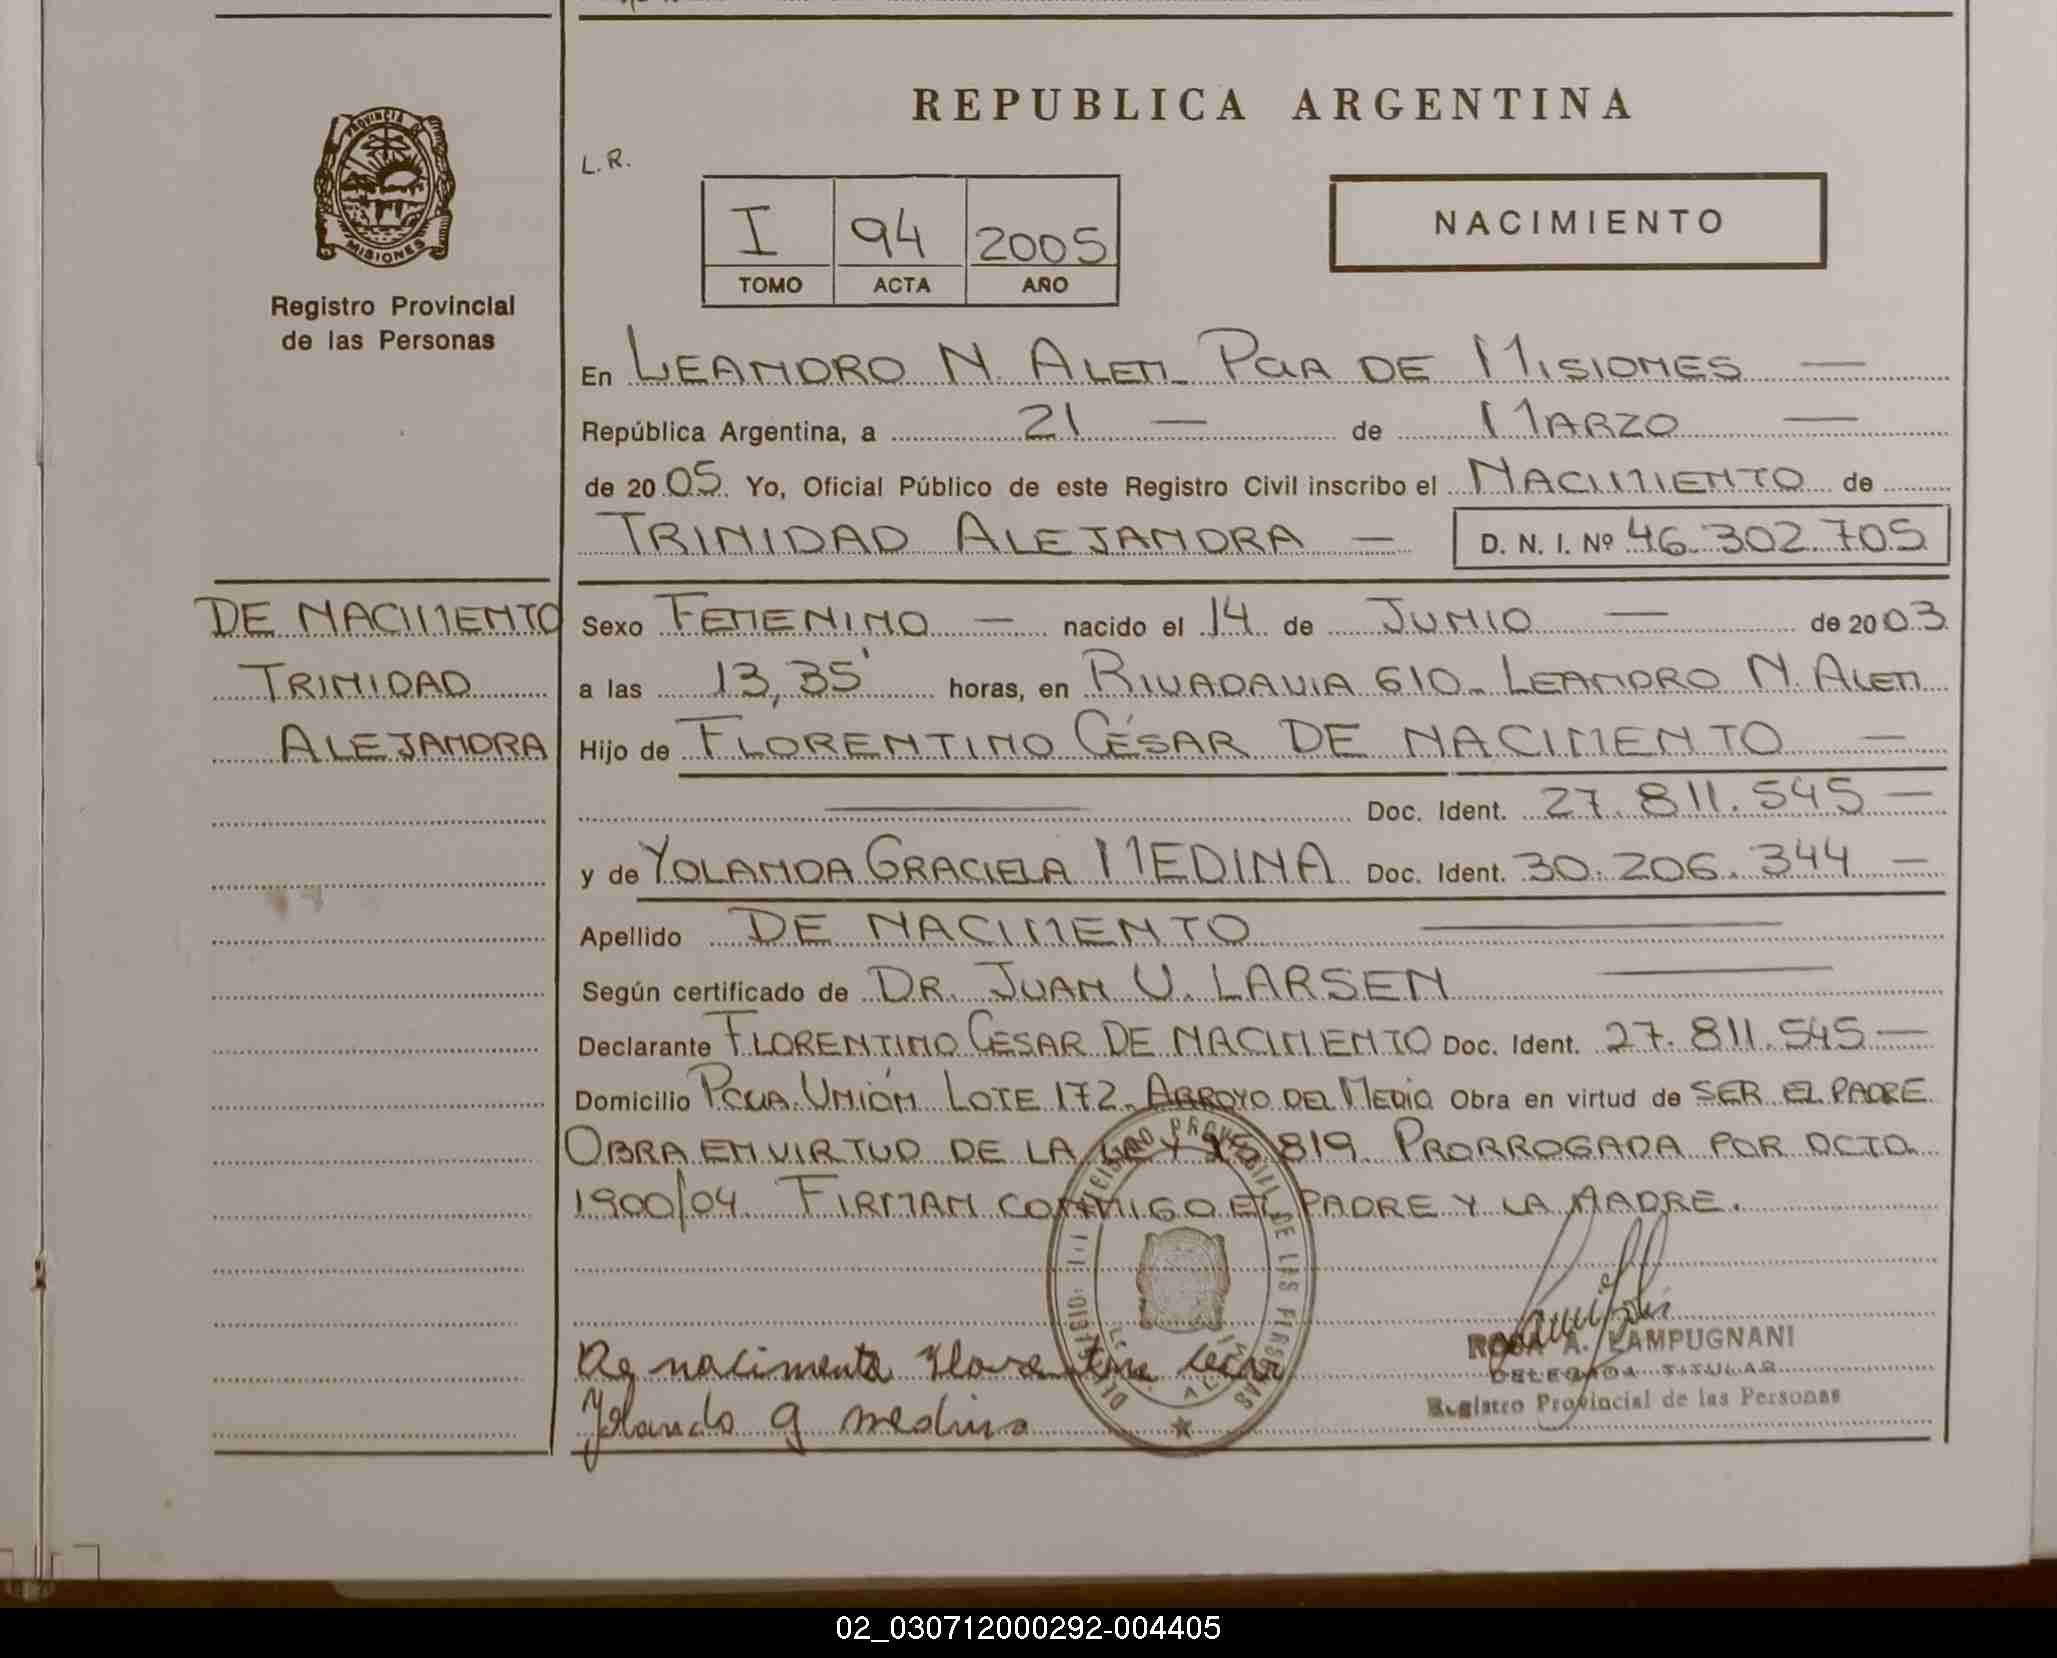 REPUBLICA ARGENTINA
PROVINCIA DE
MISIONES
Registro Provincial
de las Personas
L.R.
I 94 2005
TOMO ACTA AÑO
NACIMIENTO
En LEANDRO N. ALEM - PCIA DE MISIONES —
República Argentina, a 21 — de MARZO —
de 2005 Yo, Oficial Público de este Registro Civil inscribo el NACIMIENTO de
TRINIDAD ALEJANDRA — D. N. I. Nº 46.302.705
DE NACIMENTO
TRINIDAD
ALEJANDRA
Sexo FEMENINO — nacido el 14 de JUNIO — de 2003
a las 13,35' horas, en RIVADAVIA 610 - LEANDRO N. ALEM
Hijo de FLORENTINO CÉSAR DE NACIMENTO —
— Doc. Ident. 27.811.545 —
y de YOLANDA GRACIELA MEDINA Doc. Ident. 30.206.344 —
Apellido DE NACIMENTO —
Según certificado de DR. JUAN V. LARSEN —
Declarante FLORENTINO CESAR DE NACIMENTO Doc. Ident. 27.811.545 —
Domicilio PCIA. UNIÓN LOTE 172 - ARROYO DEL MEDIO Obra en virtud de SER EL PADRE
OBRA EN VIRTUD DE LA LEY 25.819 PRORROGADA POR DCTO.
1900/04. FIRMAN CONMIGO EL PADRE Y LA MADRE.
De nacimento Florentino Cesar
Yolanda g medina
ROSA A. LAMPUGNANI
DELEGADA TITULAR
Registro Provincial de las Personas
02_030712000292-004405